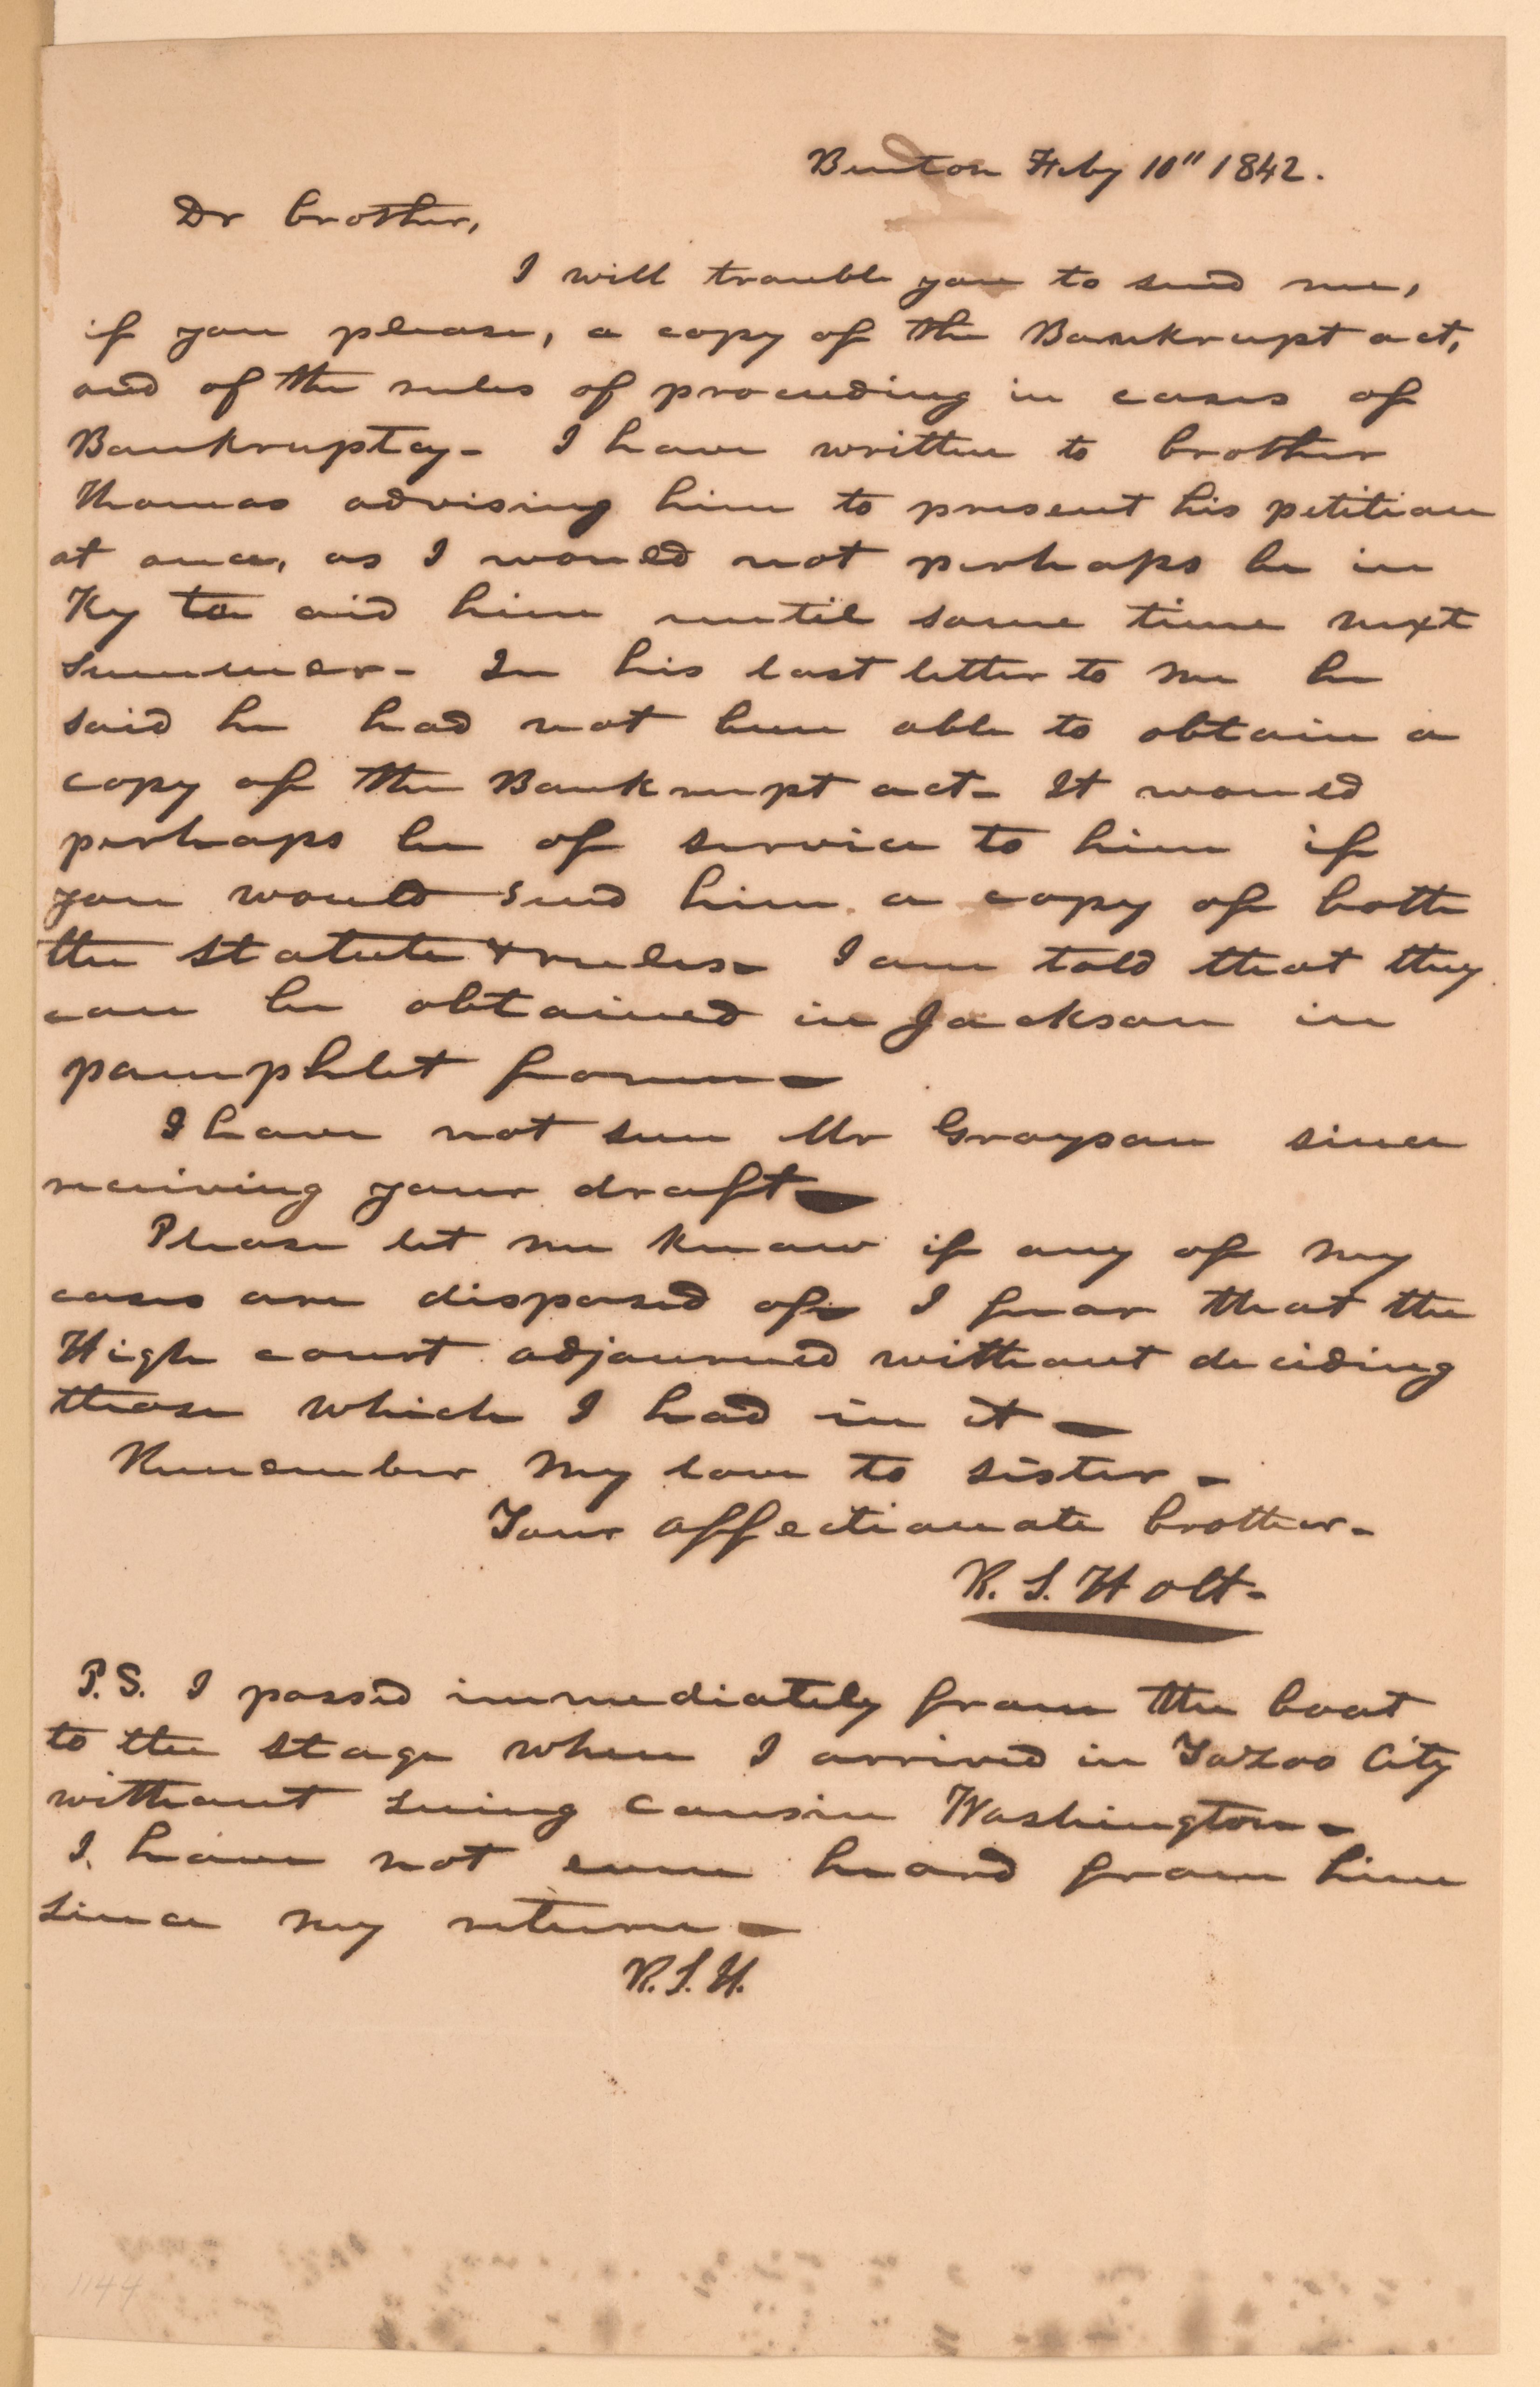 Benton Feby 10" 1842.
Dr brother,
I will trouble you to send me,
if you please, a copy of the Bankrupt act,
and of the rules of proceeding in cases of
Bankruptcy - I have written to brother
Thomas advising him to present his petition
at once, as I would not perhaps be in
Ky to aid him until some time next
summer - In his last letter to me he
said he had not been able to obtain a
copy of the Bankrupt act - It would
perhaps be of service to him if
you would send him a copy of both
the statute & rules - I am told that they
can be obtained in Jackson in
pamphlet form -
I have not seen Mr Grayson since
receiving your draft -
Please let me know if any of my
cases are disposed of - I fear that the
High court adjourned without deciding
those which I had in it -
Remember my love to sister -
Your affectionate brother -
R. S. Holt -
P.S. I passed immediately from the boat
to the stage when I arrived in Yazoo City
without seeing cousin Washington -
I have not even heard from him
since my return -
R.S.H.
1144